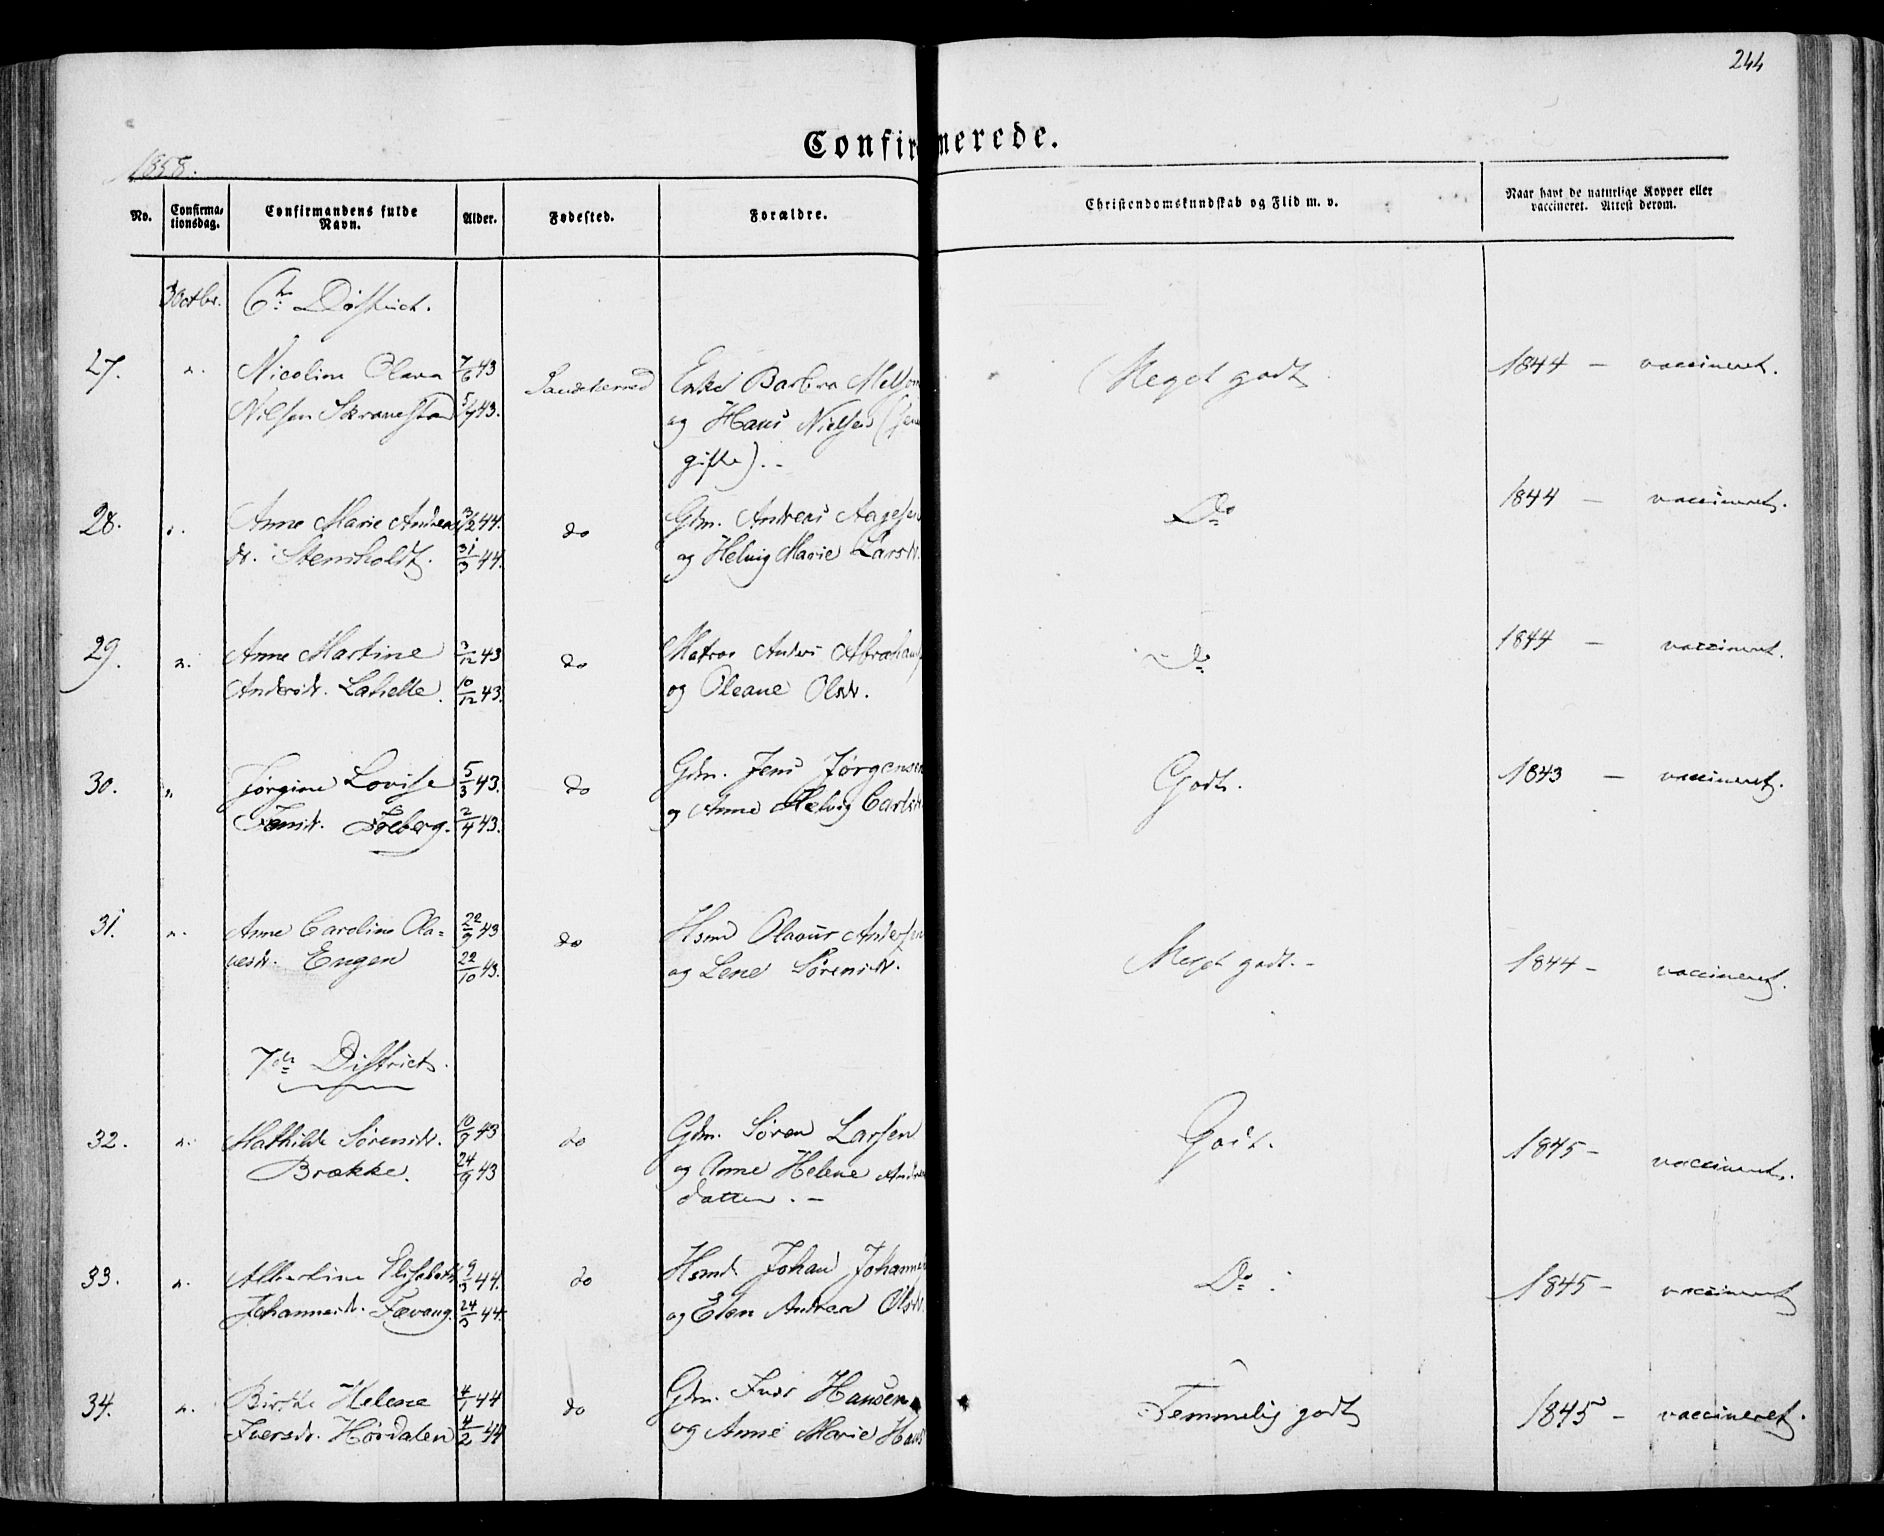 244
Confirmerede.
1858.
No.
Confirma-
tionsdag.
Confirmandens fulde
Navn.
Alder.
Fødested.
Forældre.
Christendomskundskab og Flid m. v.
Naar havt de naturlige Kopper eller
vaccineret. Attest derom.
3 Octbr. 6te District.
27. " Nicoline Olava 7/6 43 Sandeherred Enke Barbra Melsom Meget godt 1844 — vaccineret.
Nilsen Skravestad 5/9 43. og Hans Nielsen
gifte). -
28. " Anne Marie Andrea 3/2 44. do Gdm. Andreas Aagesen Do 1844 — vaccineret.
dr. Stensholdt. 31/3 44. og Helvig Marie Larsdr.
29. " Anne Martine 3/12 43 do Matros Anders Abrahams Do 1844 — vaccineret.
Andersdr. Lahelle. 10/12 43. og Oleane Olsdr.
30. " Jørgine Lovise 5/3 43. do Gdm. Jens Jørgensen Godt. 1843 — vaccineret.
Jensdr. Foeberg. 2/4 43. og Anne Helvig Carlsdr
31. " Anne Caroline Ola- 22/9 43 do Hsmd Olavus Andersen Meget godt. - 1844 - vaccineret.
vesdr. Engen 22/10 43. og Lene Sørensdr.
7de District.
32. " Mathilde Sørensdr. 10/9 43 do Gdm. Søren Larsen Godt. 1845 - vaccineret.
Brække. 24/9 43 og Anne Helene Andrea
datter. -
33. " Albertine Elisabeth 9/3 44. do Hsmd. Johan Johannes Do 1845 - vaccineret
Johannesdr. Fævang. 24/3 44. og Elen Andrea Olsdr.
34. " Birthe Helene 4/1 44 do Gdm. Iver Hansen Temmelig godt 1845 - vaccineret.
Iversdr. Hørdalen 4/2 44 og Anne Marie Hans